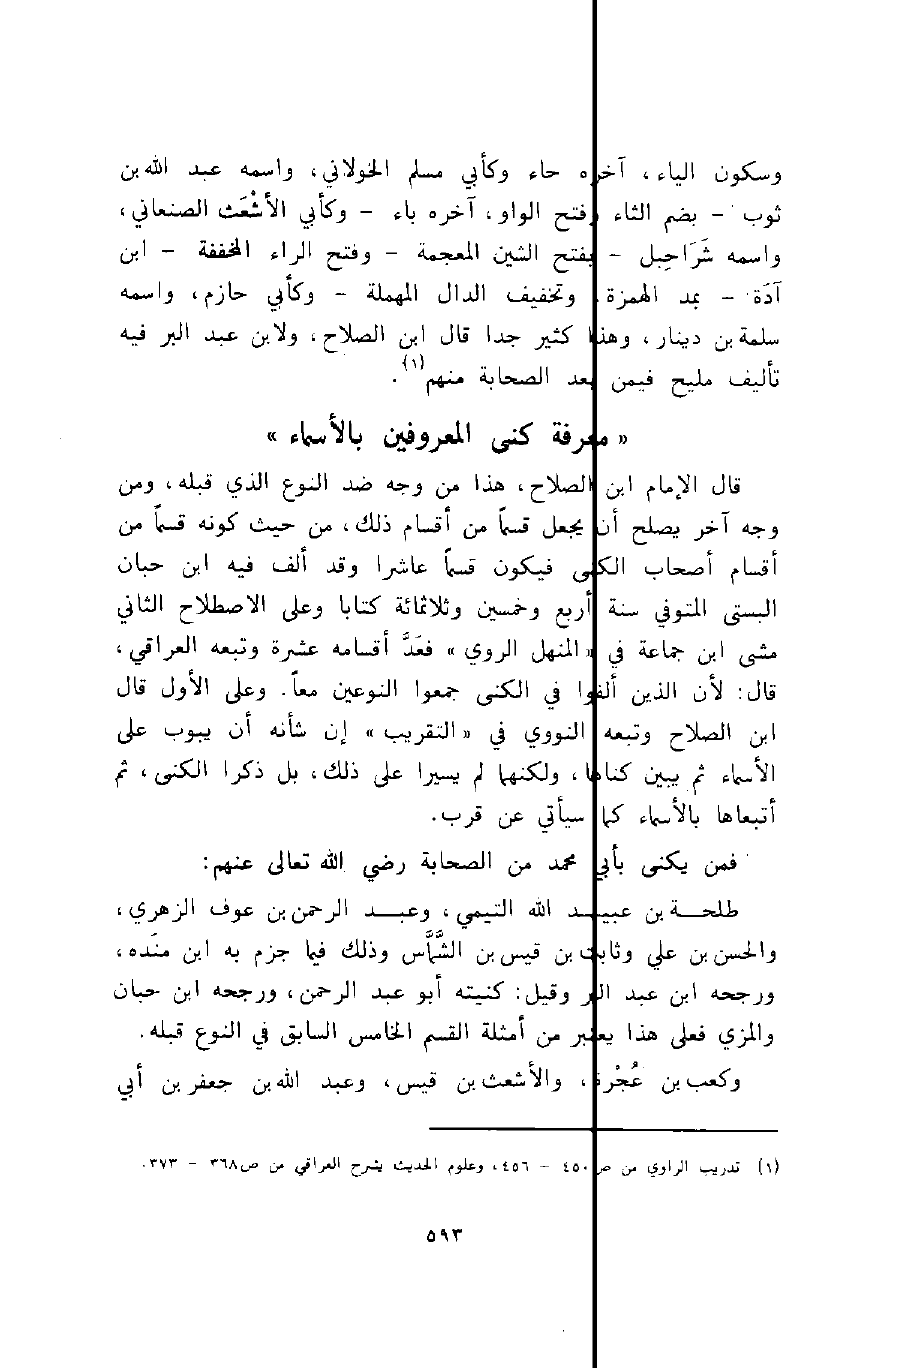 وسكون الياء، آخره حاء وكأبي مسلم الخولاني، واسمه عبد الله بن
ثوب - بضم الثاء وفتح الواو، آخره باء - وكأبي الأشْعَث الصنعاني،
واسمه شَرَاحِيل - بفتح الشين المعجمة - وفتح الراء المخففة - ابن
آدَة - بمد الهمزة وتخفيف الدال المهملة - وكأبي حازم، واسمه
سلمة بن دينار، وهذا كثير جدا قال ابن الصلاح، ولابن عبد البر فيه
تأليف مليح فيمن بعد الصحابة منهم(١).
« معرفة كنى المعروفين بالأسماء »
قال الإمام ابن الصلاح، هذا من وجه ضد النوع الذي قبله، ومن
وجه آخر يصلح أن يجعل قسماً من أقسام ذلك، من حيث كونه قسماً من
أقسام أصحاب الكنى فيكون قسماً عاشرا وقد ألف فيه ابن حبان
البستى المتوفي سنة أربع وخمسين وثلاثمائة كتابا وعلى الاصطلاح الثاني
مشى ابن جماعة في « المنهل الروي » فعَدَّ أقسامه عشرة وتبعه العراقي،
قال: لأن الذين ألفوا في الكنى جمعوا النوعين معاً. وعلى الأول قال
ابن الصلاح وتبعه النووي في « التقريب » إن شأنه أن يبوب على
الأسماء ثم يبين كناها، ولكنهما لم يسيرا على ذلك، بل ذكرا الكنى، ثم
أتبعاها بالأسماء كما سيأتي عن قرب.
فمن يكنى بأبي محمد من الصحابة رضي الله تعالى عنهم:
طلحة بن عبيد الله التيمي، وعبد الرحمن بن عوف الزهري،
والحسن بن علي وثابت بن قيس بن الشَّمَّاس وذلك فيما جزم به ابن منَده،
ورجحه ابن عبد البر وقيل: كنيته أبو عبد الرحمن، ورجحه ابن حبان
والمزي فعلى هذا يعتبر من أمثلة القسم الخامس السابق في النوع قبله.
وكعب بن عُجْرة، والأشعث بن قيس، وعبد الله بن جعفر بن أبي
(١) تدريب الراوي من ص٤٥٠ - ٤٥٦، وعلوم الحديث بشرح العراقي من ص٣٦٨ - ٣٧٣.
٥٩٣